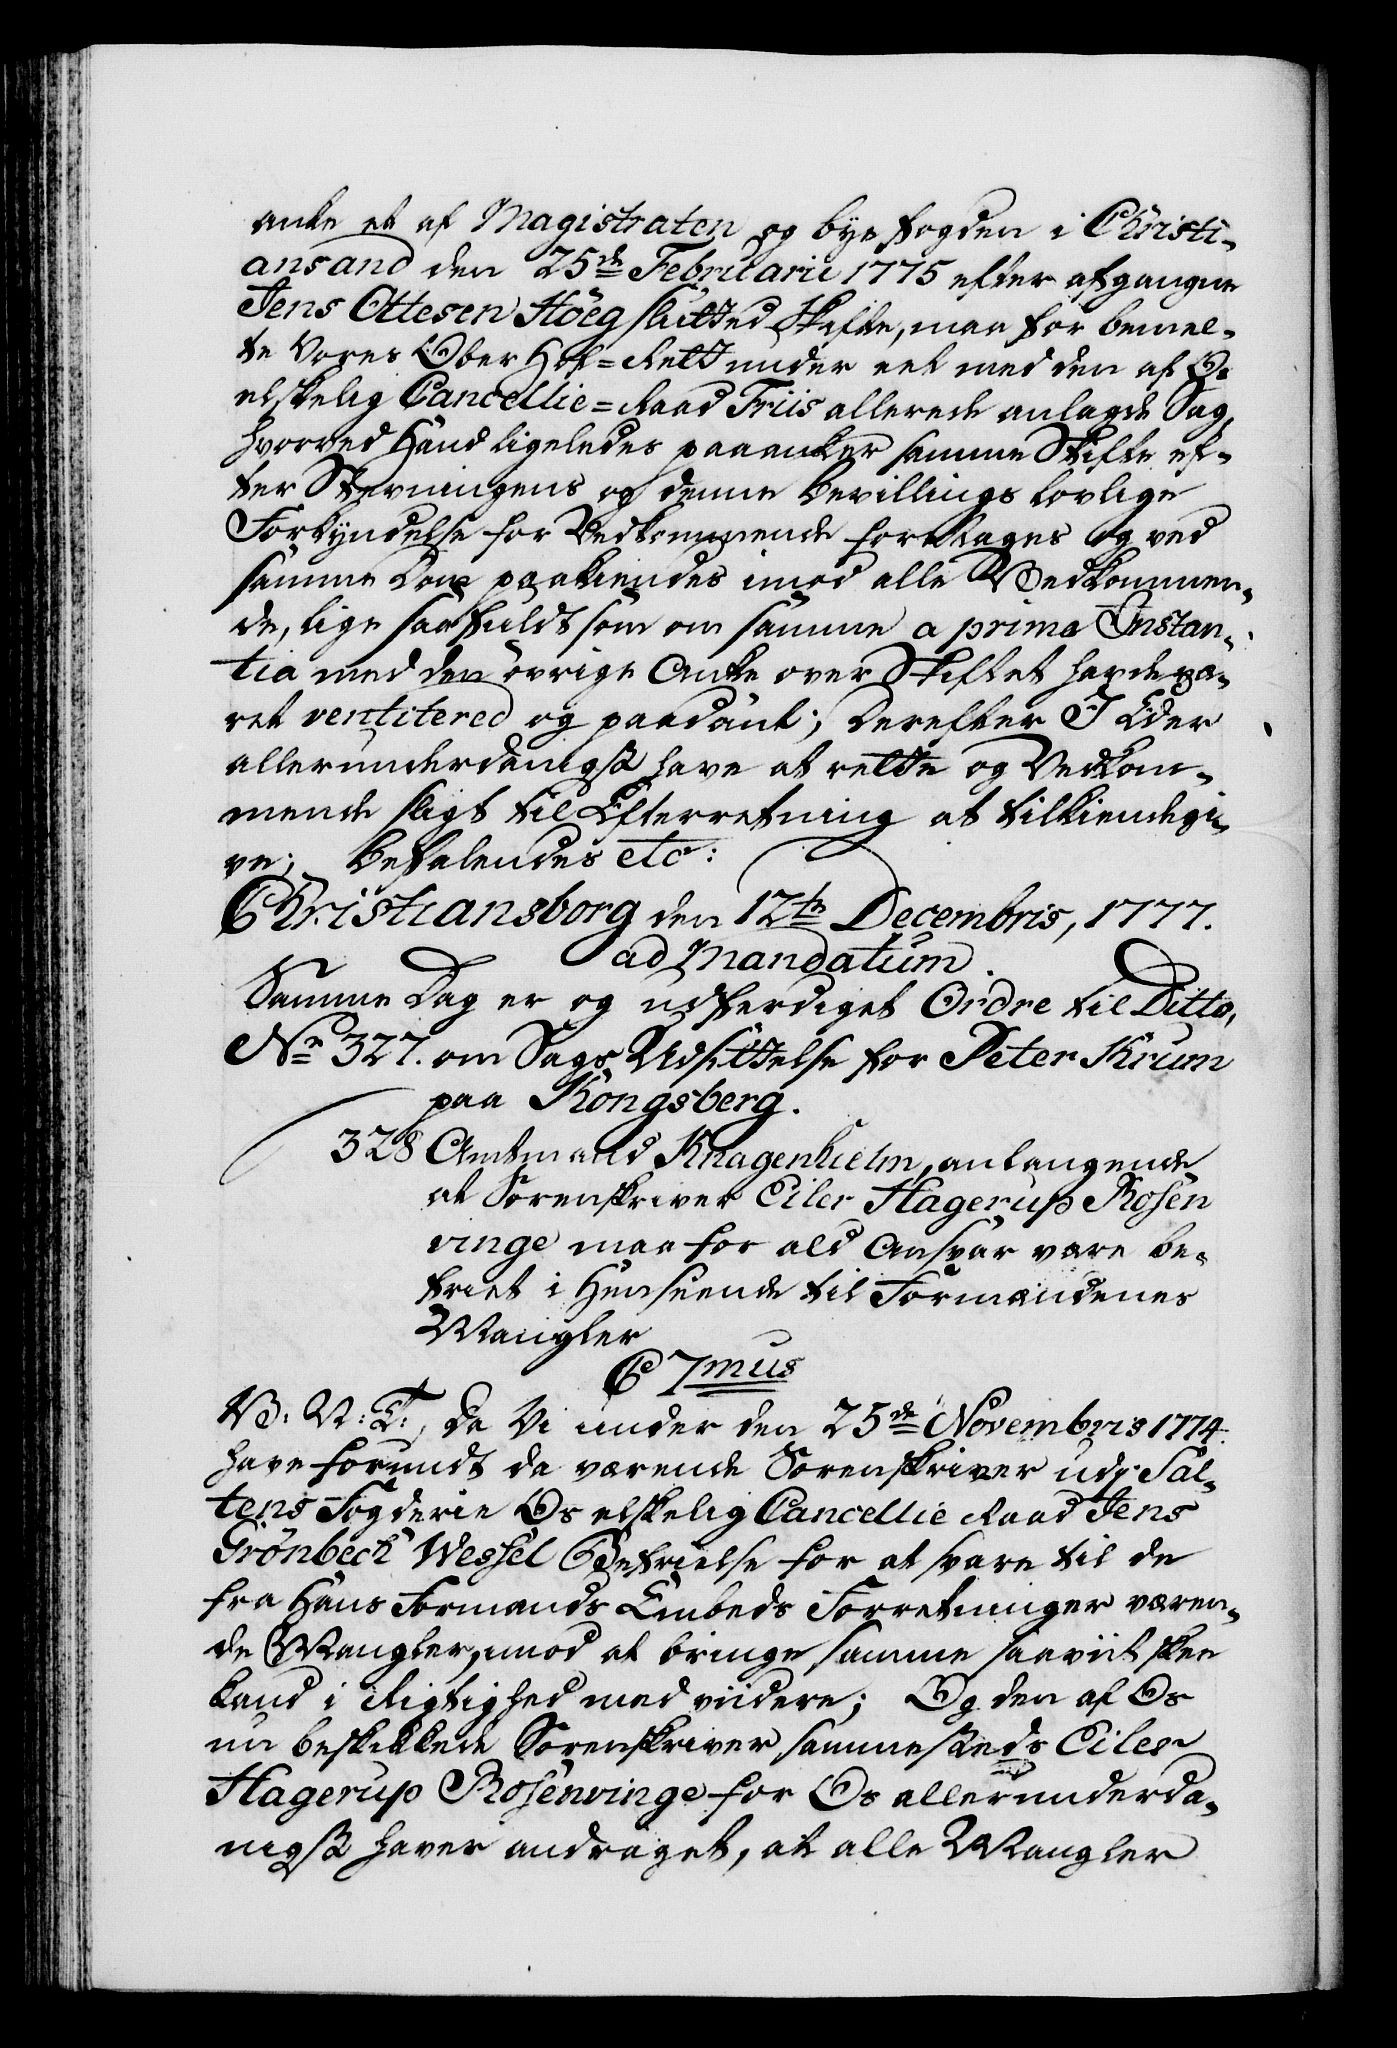 anke et af Magistraten og bye fogden i Christi-
ansand den 25de Februarii 1775 efter afgangne
Jens Ottesen Höeg slutted Skifte, maa for bemel-
te Vores Ober Hof-Rett under eet med den af Os
elskelig Cancellie-Raad Friis allerede anlagde Sag,
hvorved Hand ligeledes paaanker samme Skifte ef-
ter Stevningens og denne Bevillings lovlige
Forkyndelse for Vedkommende foretages og ved
samme Dom paakiendes imod alle Vedkommen-
de, lige saafuldt som om samme a prima Instan-
tia med den övrige Anke over Skiftet havde væ-
ret ventitered og paadömt; Derefter I Eder
allerunderdanigst have at rette og Vedkom-
mende sligt til Efterretning at tilkiendegi-
ve; Befalendes etc:
Christiansborg den 12te Decembris, 1777.
ad Mandatum.
Samme Dag er og udferdiget Ordre til Ditto,
No 327. om Sags Udsættelse for Peter Krum
paa Kongsberg.
328 Amtmand Knagenhielm, anlangende
at Sorenskriver Eiler Hagerup Rosen
vinge maa for ald Ansvar være be-
friet i Henseende til Formændenes
Mangler
C 7mus
V: V: T:, Da Vi under den 25de Novembris 1774.
have forundt da værende Sorenskriver udj Sal-
tens Fogderie Os elskelig Cancellie Raad Jens
Grönbeck Wessel Befrielse for at svare til de
fra Hans Formands Embeds Forretninger væren-
de Mangler, imod at bringe samme saaviit skee
kand i Rigtighed med viidere; Og den af Os
nu beskikkede Sorenskriver sammesteds Eiler
Hagerup Rosenvinge for Os allerunderda-
nigst haver andraget, at alle Mangler